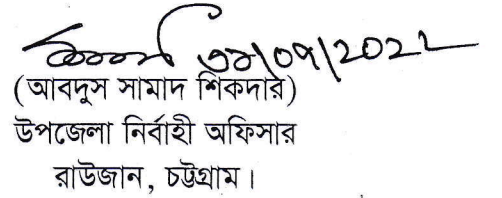 ৩১/০৭/2022
(আবদুস সামাদ শিকদার)
উপজেলা নির্বাহী অফিসার
রাউজান, চট্টগ্রাম।